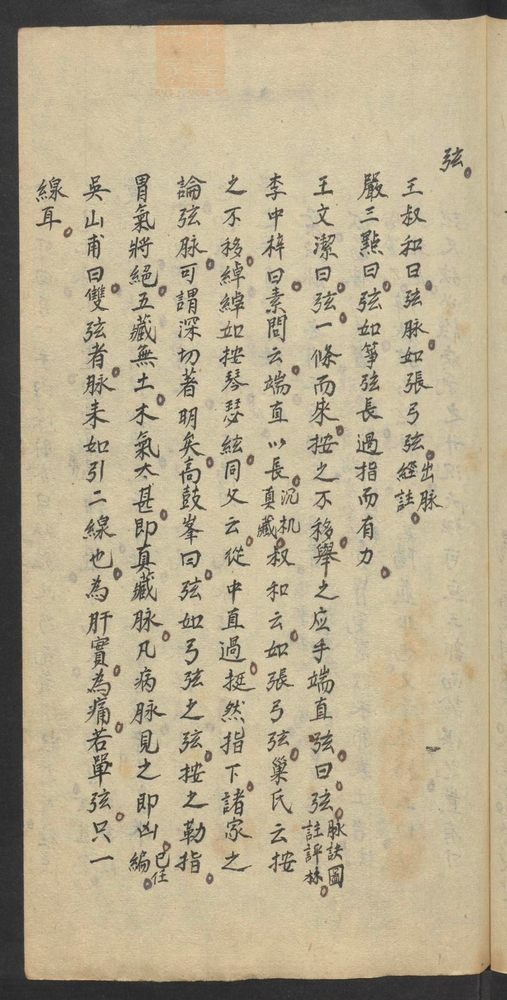 弦。
王叔和曰。弦脉如張弓弦。出脉經註。
嚴三點曰。弦如箏弦。長過指而有力。
王文潔曰。弦一條而來。按之不移。舉之应手。端直弦曰弦。脉訣圖註評林。
李中梓曰。素問云。端直以長。真藏玑机。叔和云。如張弓弦。巢氏云。按
之不移。綽綽如按琴瑟絃。同父云。從中直過。挺然指下。諸家之
論弦脉。可謂深切著明矣。高鼓峯曰。弦如弓弦之弦。按之勒指。
胃氣將絕。五藏無土。木氣太甚。即真藏脉。凡病脉見之即凶。已任編。
吳山甫曰。雙弦者。脉来如引二線也。為肝實。為痛。若單弦。只一
線耳。